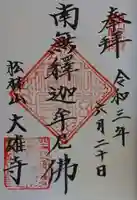 奉拝
令和三年
六月二十日
南無釋迦牟尼佛
大雄寺